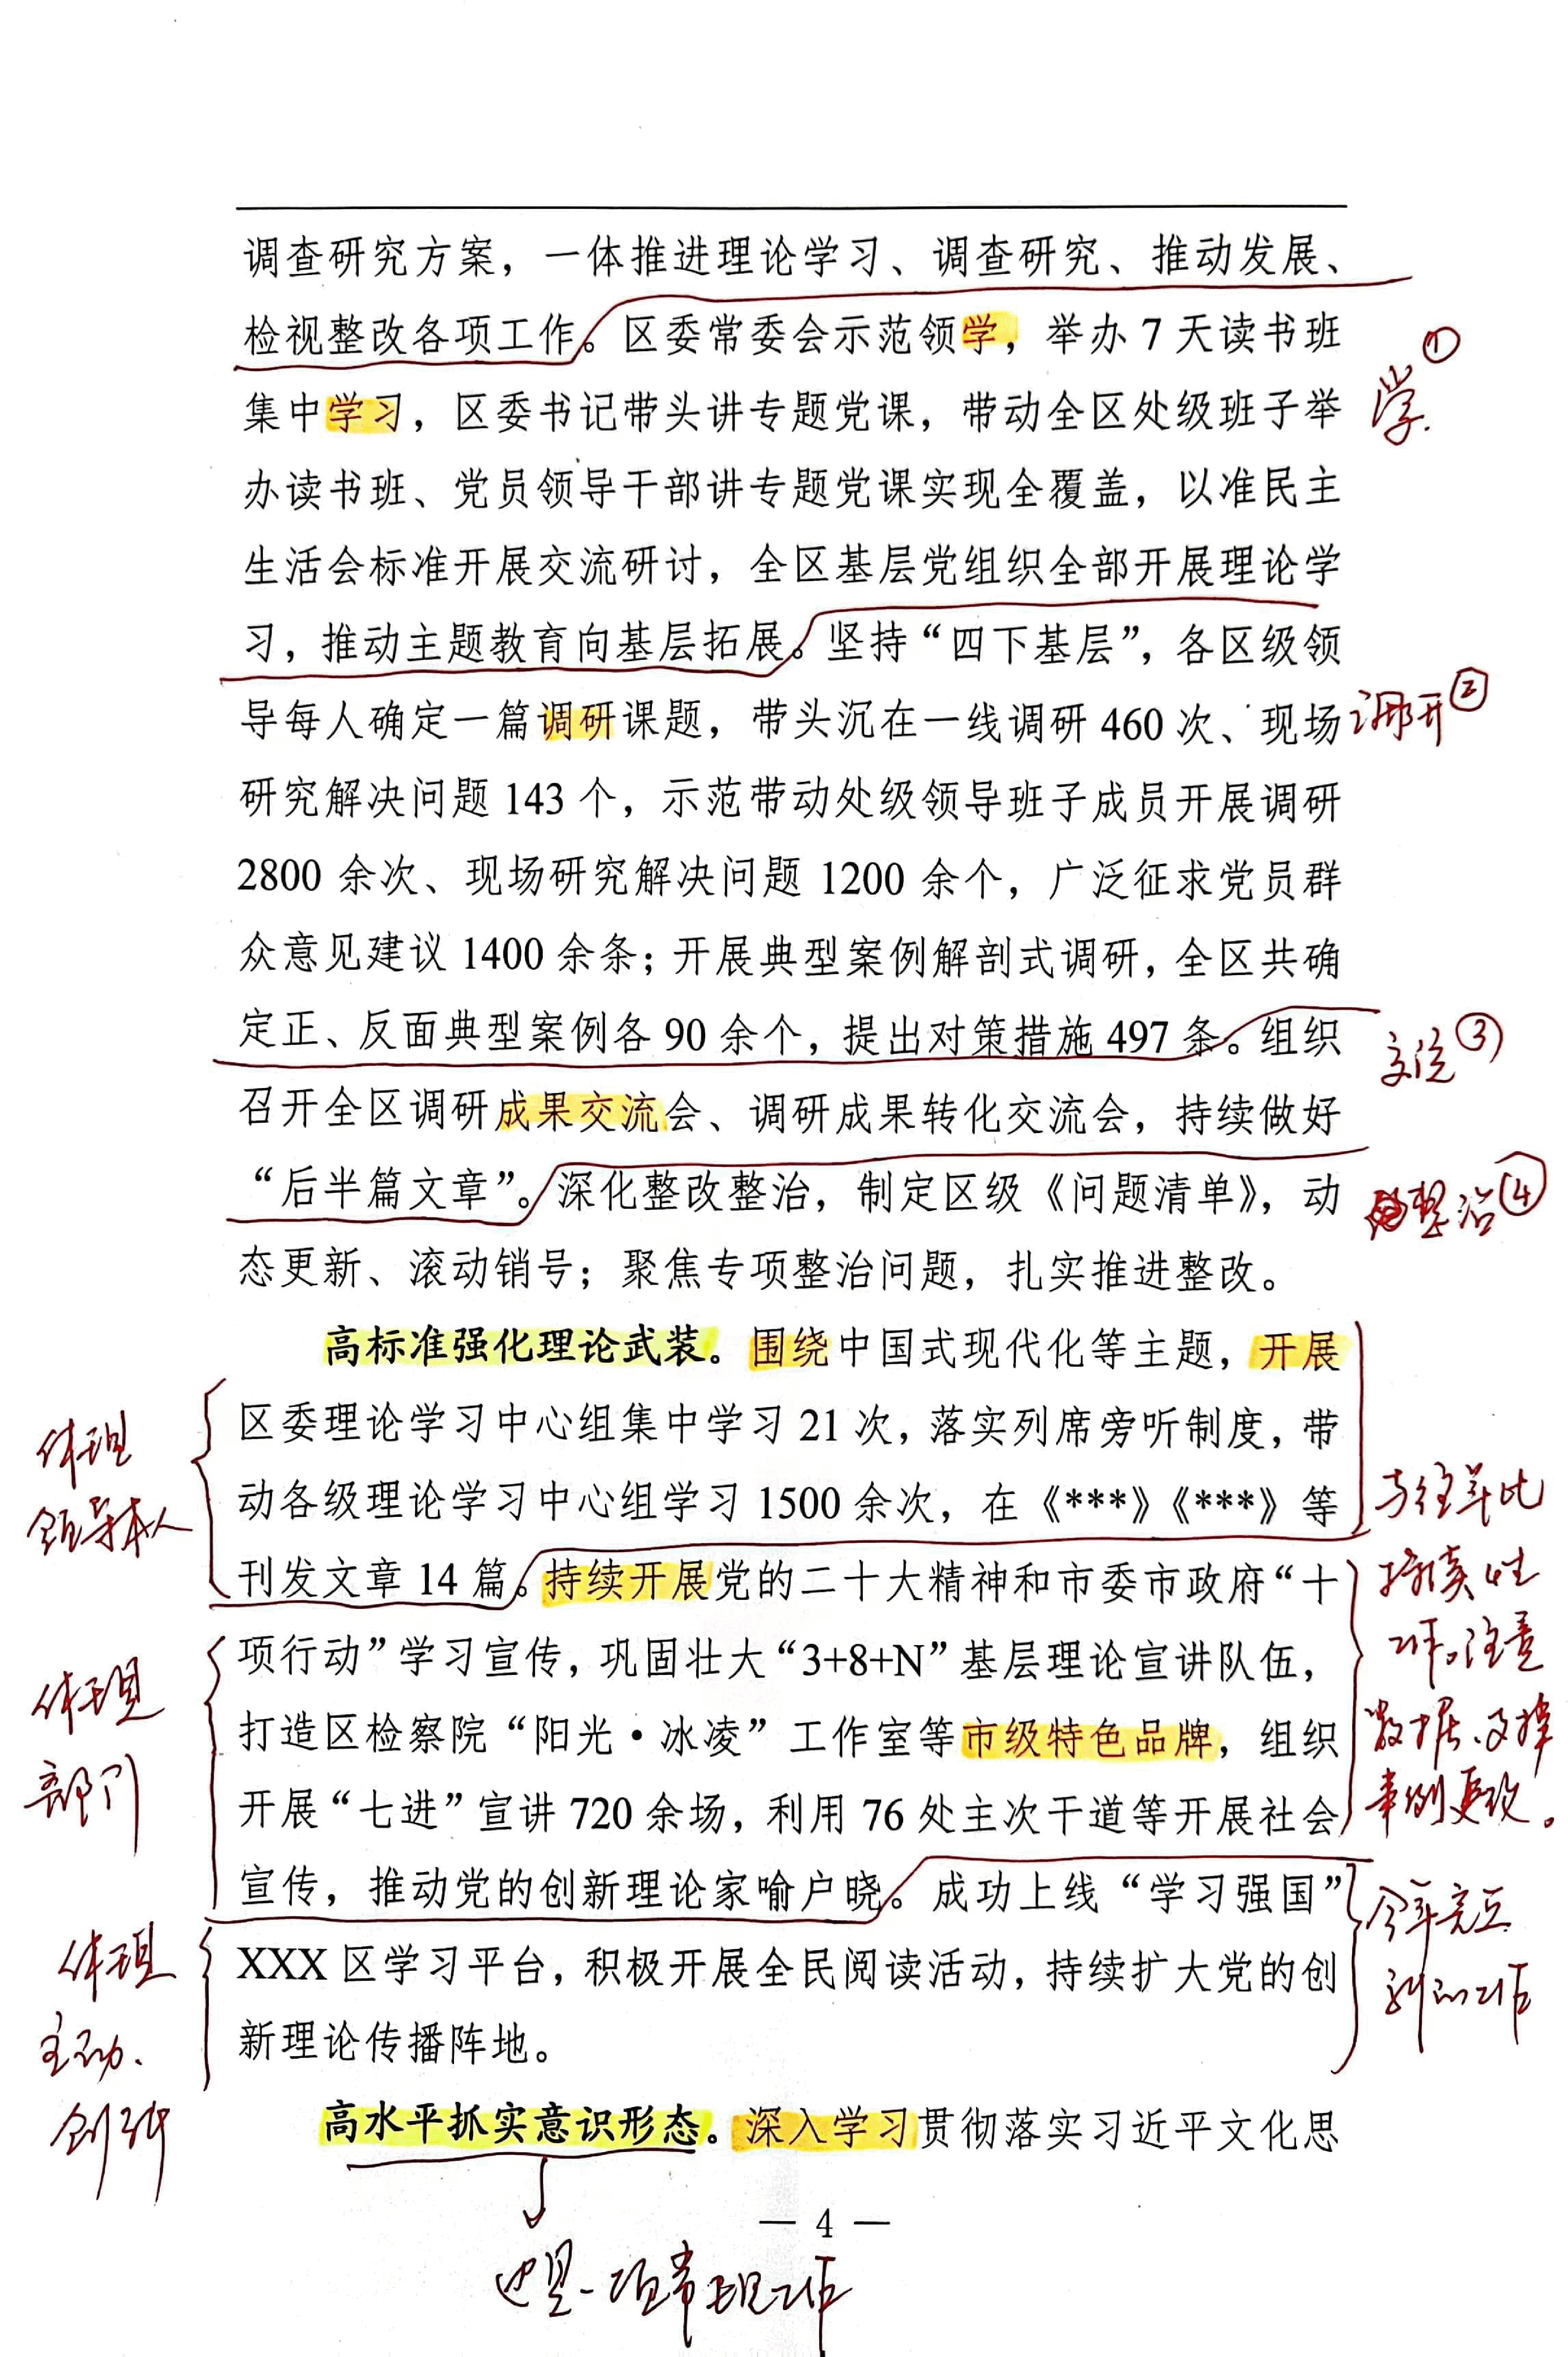 调查研究方案，一体推进理论学习、调查研究、推动发展、
检视整改各项工作。区委常委会示范领学，举办 7 天读书班
集中学习，区委书记带头讲专题党课，带动全区处级班子举
办读书班、党员领导干部讲专题党课实现全覆盖，以准民主
生活会标准开展交流研讨，全区基层党组织全部开展理论学
习，推动主题教育向基层拓展。坚持“四下基层”，各区级领
导每人确定一篇调研课题，带头沉在一线调研 460 次、现场
研究解决问题 143 个，示范带动处级领导班子成员开展调研
2800 余次、现场研究解决问题 1200 余个，广泛征求党员群
众意见建议 1400 余条；开展典型案例解剖式调研，全区共确
定正、反面典型案例各 90 余个，提出对策措施 497 条。组织
召开全区调研成果交流会、调研成果转化交流会，持续做好
“后半篇文章”。深化整改整治，制定区级《问题清单》，动
态更新、滚动销号；聚焦专项整治问题，扎实推进整改。
高标准强化理论武装。围绕中国式现代化等主题，开展
区委理论学习中心组集中学习 21 次，落实列席旁听制度，带
动各级理论学习中心组学习 1500 余次，在《***》《***》等
刊发文章 14 篇。持续开展党的二十大精神和市委市政府“十
项行动”学习宣传，巩固壮大“3+8+N”基层理论宣讲队伍，
打造区检察院“阳光·冰凌”工作室等市级特色品牌，组织
开展“七进”宣讲 720 余场，利用 76 处主次干道等开展社会
宣传，推动党的创新理论家喻户晓。成功上线“学习强国”
XXX 区学习平台，积极开展全民阅读活动，持续扩大党的创
新理论传播阵地。
高水平抓实意识形态。深入学习贯彻落实习近平文化思
— 4 —
学 ①
调研 ②
交流 ③
整治 ④
体现
领导本人
体现
部门
体现
主动、
创新
与往年比
持续性
工作。注意
数据、支撑
事例更改。
今年亮点
新的工作
这是一项常规工作